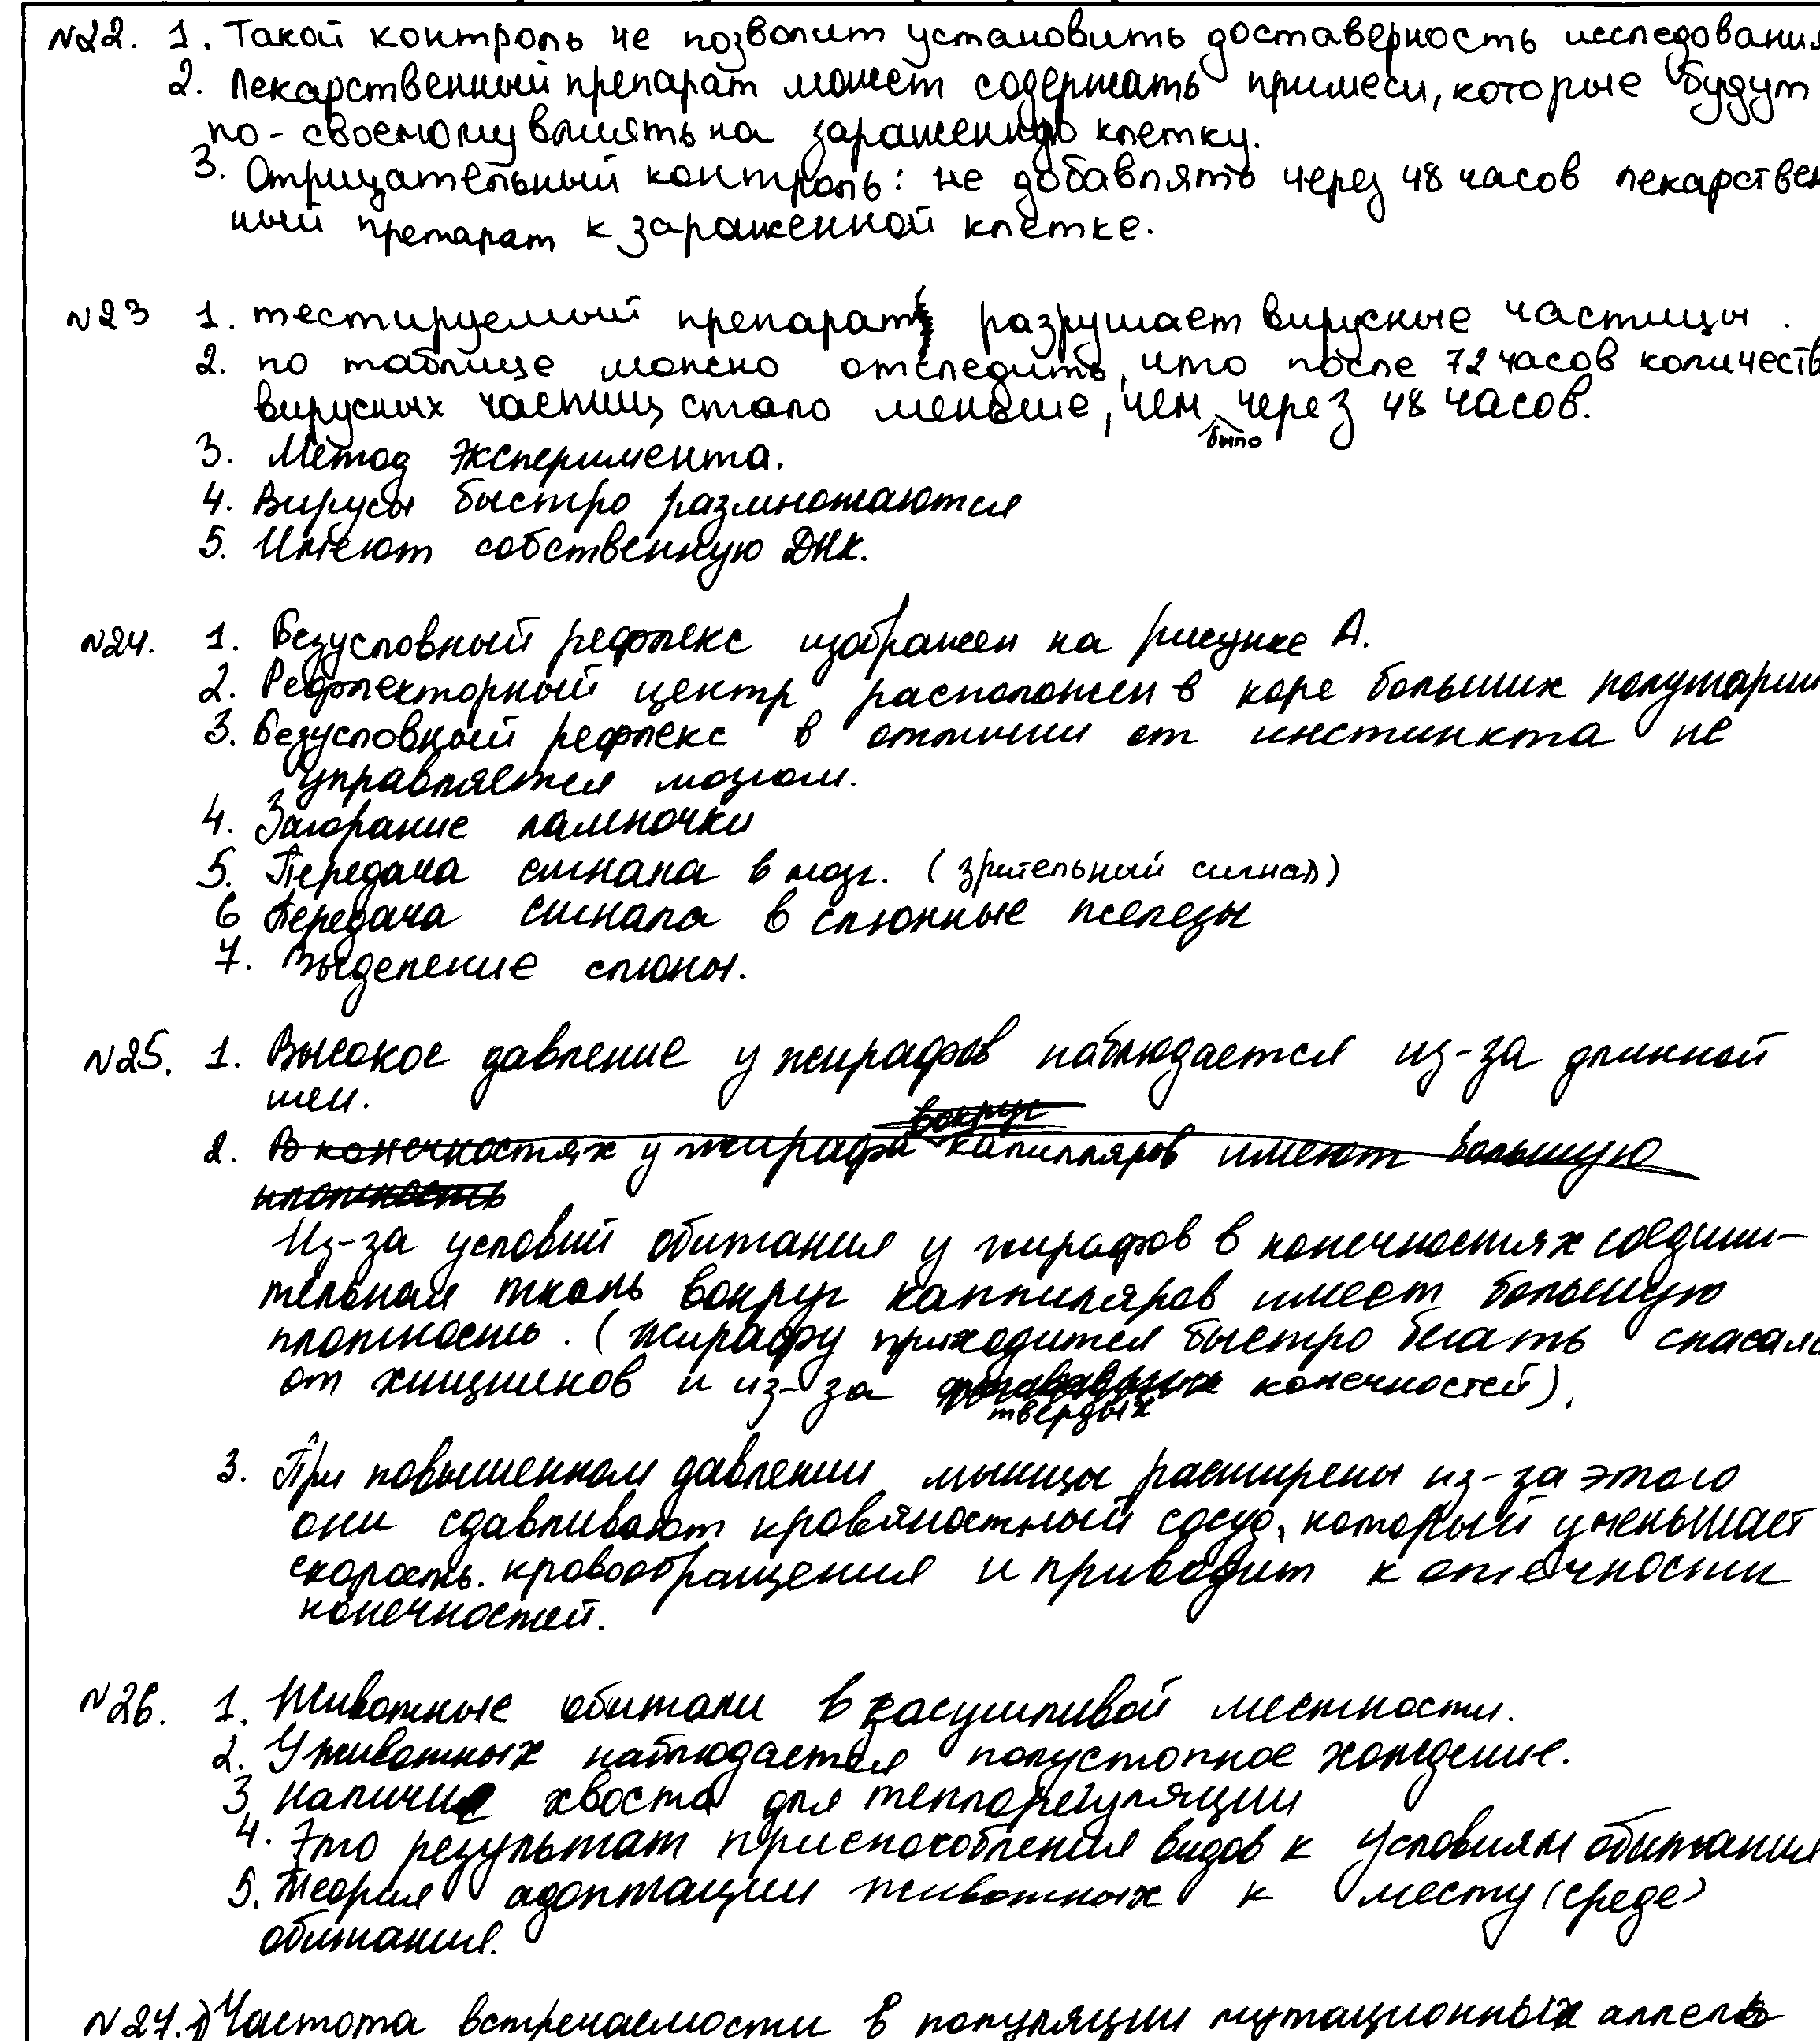 №22. 1. Такой контроль не позволит установить доставерность исследования
2. Лекарственный препарат может содержать примеси, которые будут
по-своему влиять на зараженную клетку.
3. Отрицательный контроль: не добавлять через 48 часов лекарствен
ный препарат к зараженной клетке.
№23 1. тестируемый препарат разрушает вирусные частицы.
2. по таблице можно отследить, что после 72 часов количеств
вирусных частиц стало меньше, чем было через 48 часов.
3. Метод эксперимента.
4. Вирусы быстро размножаются
5. Имеют собственную ДНК.
№24. 1. Безусловный рефлекс изображен на рисунке А.
2. Рефлекторный центр расположен в коре больших полушарий
3. Безусловный рефлекс в отличии от инстинкта не
управляется мозгом.
4. Загорание лампочки
5. Передача сигнала в мозг. (зрительный сигнал)
6 Передача сигнала в слюнные железы
7. Выделение слюны.
№25. 1. Высокое давление у жирафов наблюдается из-за длинной
шеи.
вокруг
2. В конечностях у жирафа капилляров имеют большую
плотность
Из-за условий обитания у жирафов в конечностях соедини-
тельная ткань вокруг каппиляров имеет большую
плотность. (жирафу приходится быстро бегать спасаясь
от хищников и из-за твердых конечностей).
3. При повышенном давлении мышцы расширены из-за этого
они сдавливают кровяностный сосуд, который уменьшает
скорость. кровообращения и приводит к отечности
конечностей.
№26. 1. Животные обитали в засушливой местности.
2. У животных наблюдается полустопное хождение.
3. Наличие хвоста для теплорегуляции
4. Это результат приспособления видов к условиям обитания
5. Теория адоптации животных к месту (среде)
обитания.
№27. 1) Частота встречаемости в популяции мутационных аллель